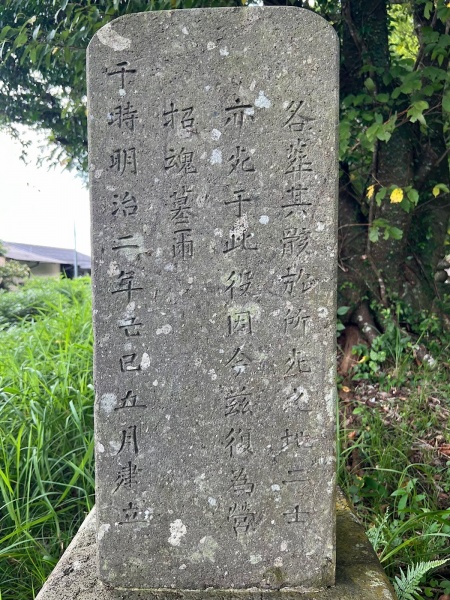 各葬其骸於所死之地二士
亦死于此役因今茲復為營
招魂墓爾
于時明治二年己巳五月建立